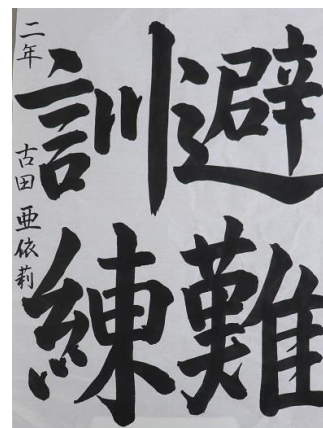 避難
訓練
二年 古田 亜依莉